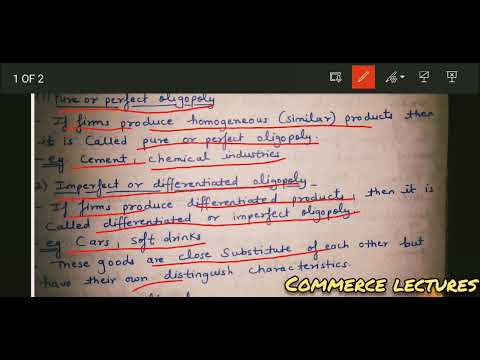 1 OF 2
1) Pure or perfect oligopoly
- If firms produce homogeneous (similar) products then
it is Called pure or perfect oligopoly.
- eg. Cement, chemical industries
2) Imperfect or differentiated oligopoly -
- If firms produce differentiated products, then it is
Called differentiated or imperfect oligopoly.
- eg Cars, soft drinks
- These goods are close Substitute of each other but
have their own distinguish characteristics.
COMMERCE LECTURES